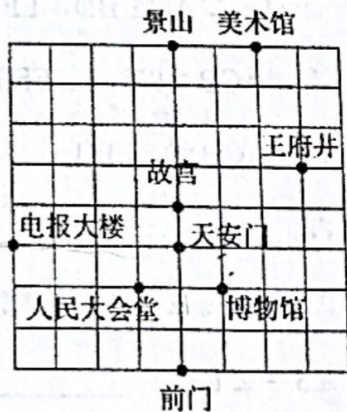 景山 美术馆
王府井
故宫
电报大楼 天安门
人民大会堂 博物馆
前门